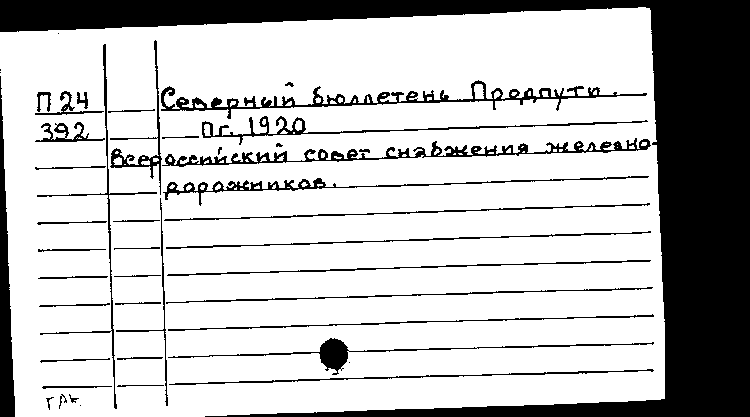 П 24 Северный бюллетень Продпути.
392 Пг., 1920
Всероссийский совет снабжения железно-
дорожников.
ГАК